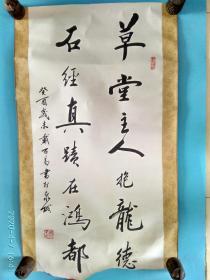 草堂主人抱龍德
石經真蹟在鴻都
癸酉歲末戴萬馬書於泉城